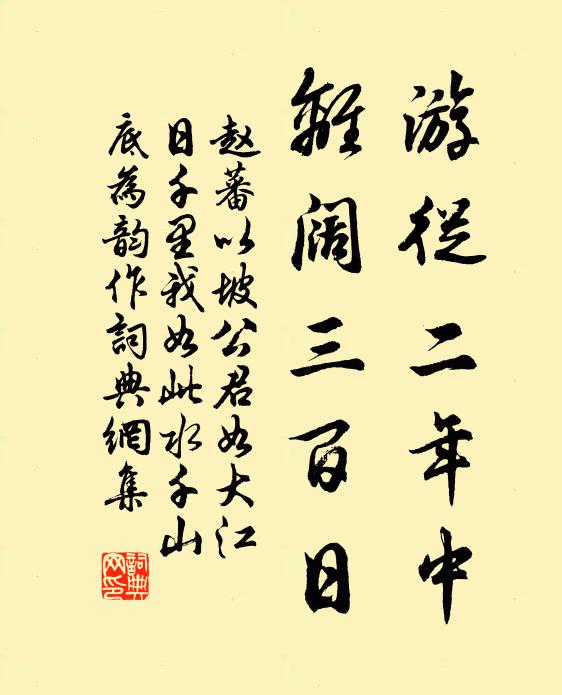 游從二年中
離阔三百日
赵蕃以坡公君如大江
日千里我如此水千山
底為韵作詞典網集
詞典網印